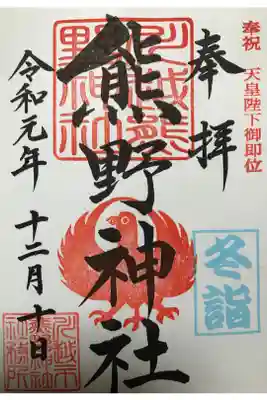 奉祝 天皇陛下御即位
奉拝
冬詣
熊野神社
川越熊野神社
令和元年 十二月 十日
川越市
熊野神社
社務所